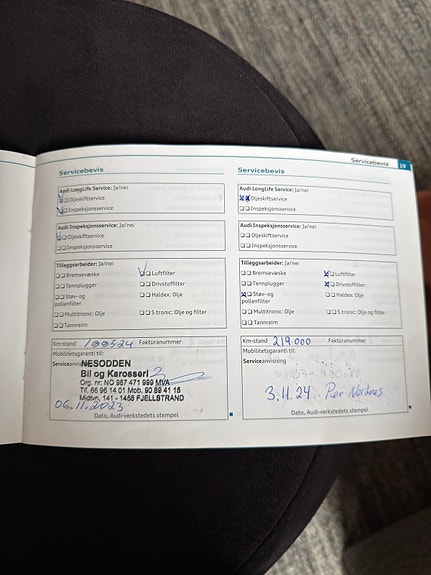 Servicebevis 19
Servicebevis
Audi LongLife Service: Ja/nei
Oljeskiftservice
Inspeksjonsservice
Audi Inspeksjonsservice: Ja/nei
Oljeskiftservice
Inspeksjonsservice
Tilleggsarbeider: Ja/nei
Bremsevæske
Luftfilter
Tennplugger
Drivstoffilter
Støv- og
pollenfilter
Haldex: Olje
Multitronic: Olje
S tronic: Olje og filter
Tannreim
Km-stand
Fakturanummer
Mobilitetsgaranti til:
Serviceanvisning
NESODDEN
Bil og Karosseri
Org. nr: NO 987 471 999 MVA
Tlf. 66 96 14 01 Mob. 90 89 41 15
Midtvn. 141 - 1458 FJELLSTRAND
06.11.2023
Dato, Audi-verkstedets stempel
Servicebevis
Audi LongLife Service: Ja/nei
Oljeskiftservice
Inspeksjonsservice
Audi Inspeksjonsservice: Ja/nei
Oljeskiftservice
Inspeksjonsservice
Tilleggsarbeider: Ja/nei
Bremsevæske
Luftfilter
Tennplugger
Drivstoffilter
Støv- og
pollenfilter
Haldex: Olje
Multitronic: Olje
S tronic: Olje og filter
Tannreim
Km-stand 219 000 Fakturanummer
Mobilitetsgaranti til:
Serviceanvisning
3.11.24 Per Nordnes
Dato, Audi-verkstedets stempel